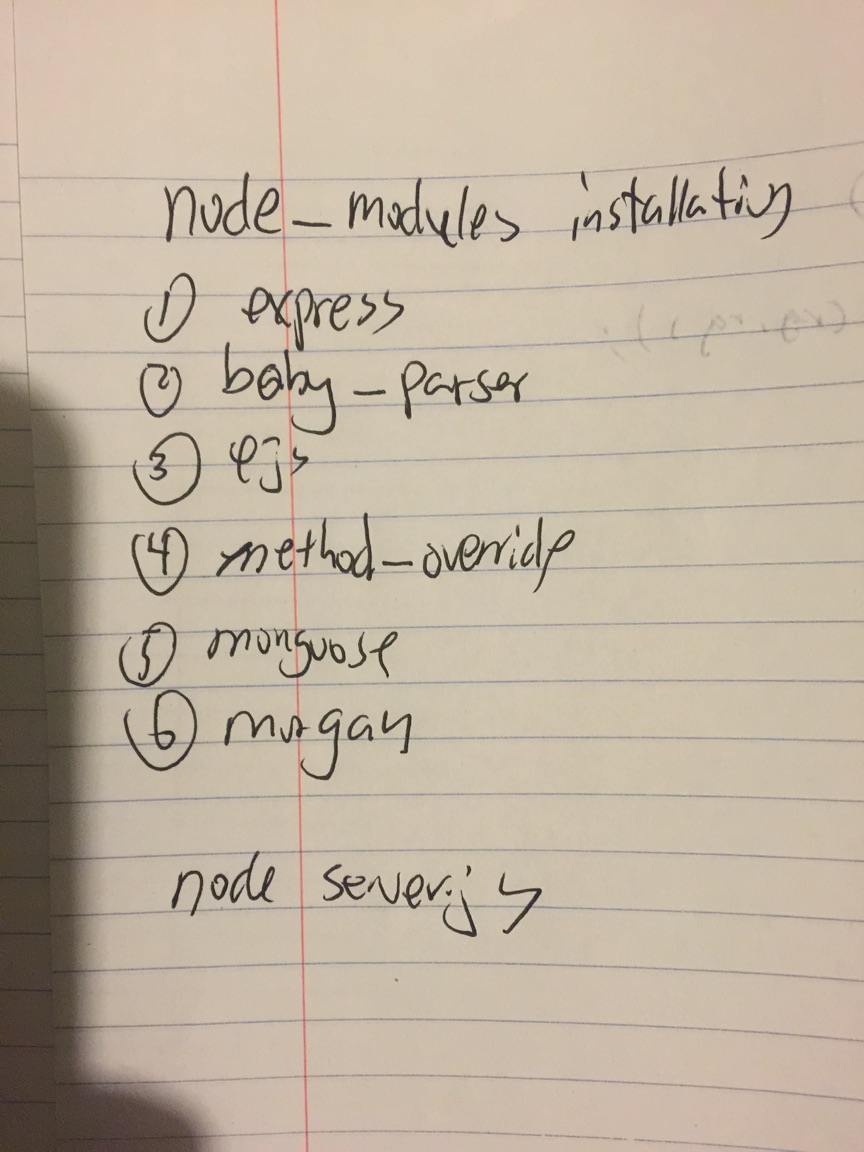 node_modules installation
① express
② body_parser
③ ejs
④ method_override
⑤ mongoose
⑥ morgan
node server.js